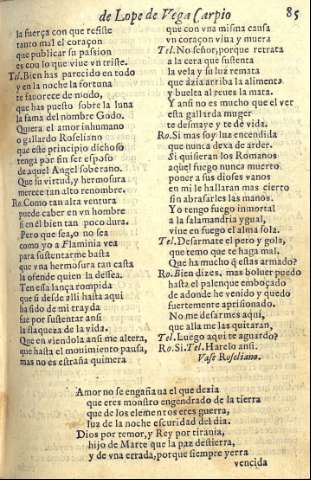 de Lope de Vega Carpio 85
la fuerça con que resiste
tanto mal el coraçon
que publicar su passion
es con lo que viue vn triste.
Tel. Bien has parecido en todo
y en la noche la fortuna
te fauorece de modo,
que has puesto sobre la luna
la fama del nombre Godo.
Quiera el amor inhumano
o gallardo Roseliano
que este principio dichoso
tenga por fin ser esposo
de aquel Angel soberano.
Que su virtud, y hermosura
merece tan alto renombre.
Ro. Como tan alta ventura
puede caber en vn hombre
si en el bien tan poco dura.
Pero que sea, o no sea
como yo a Flaminia vea
para sustentarme basta
que vna hermosura tan casta
la ofende quien la dessea.
Tenesa lança rompida
que si desde alli hasta aqui
ha sido de mi trayda
fue por sustentar ansi
la flaqueza de la vida.
Que en viendola ansi me altera,
que hasta el mouimiento pausa,
mas no es estraña quimera
que con vna misma causa
vn coraçon viua y muera
Tel. No señor, porque retrata
a la cera que sustenta
la vela y su luz remata
que azia arriba la alimenta
y buelta al reues la mata.
Y ansi no es mucho que el ver
esta gallarda muger
te desmaye y te dè vida.
Ro. Si mas soy luz encendida
que nunca dexa de arder.
Si quisieran los Romanos
aquel fuego nunca muerto
poner a sus dioses vanos
en mi le hallaran mas cierto
sin abrasarles las manos.
Yo tengo fuego inmortal
a la salamandria ygual,
viue en fuego el alma sola.
Tel. Desarmate el peto y gola,
que temo que te haga mal.
Que ha mucho q̃ estas armado?
Ro. Bien dizes, mas boluer puedo
hasta el palenque emboçado
de adonde he venido y quedo
fuertemente aprisionado.
No me desarmes aqui,
que alla me las quitaran,
Tel. Luego aqui te aguardo?
Ro. Si. Tel. Harelo ansi.
Vase Roseliano.
Amor no se engañaua el que dezia
que eres monstro engendrado de la tierra
que de los elementos eres guerra,
luz de la noche escuridad del dia.
Dios por temor, y Rey por tirania,
hijo de Marte que la paz destierra,
y de vna errada, porque siempre yerra
vencida